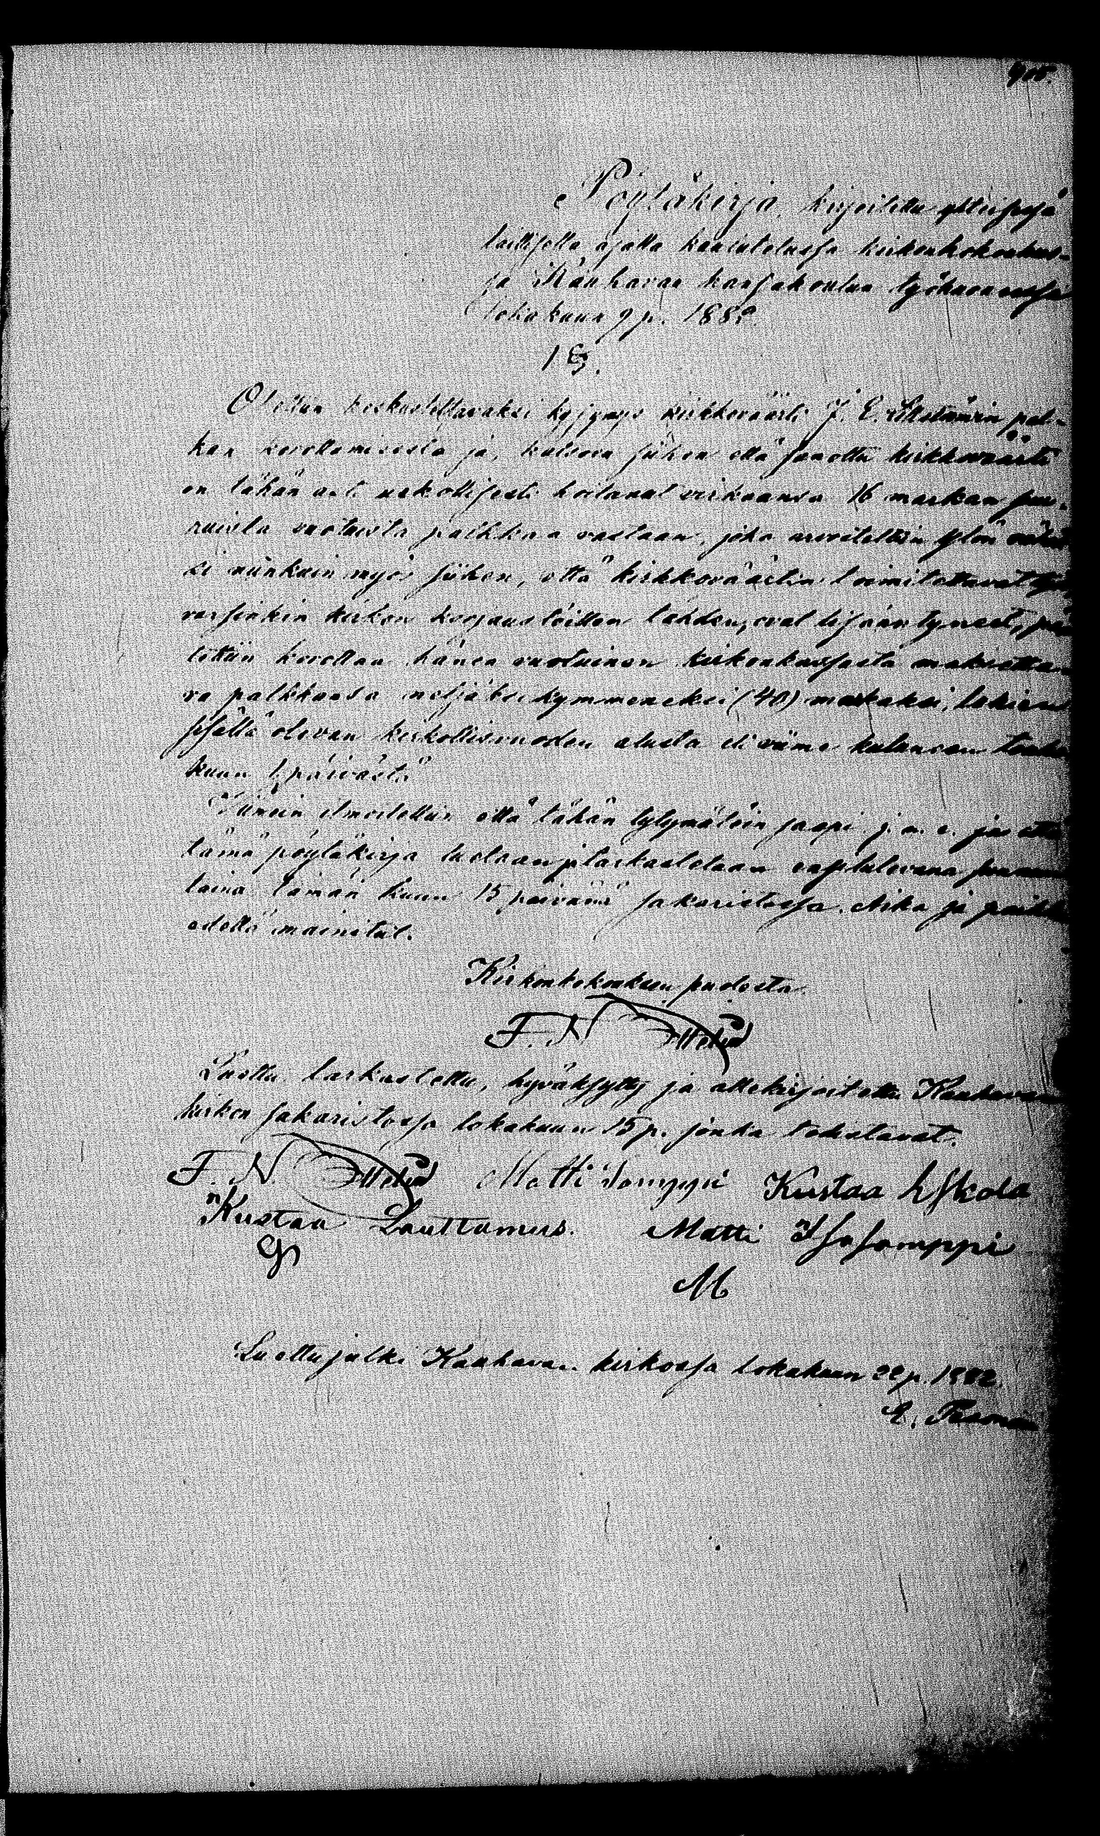 Pöytäkirja, kirjoitettu
laillisella ajalla kuulutetussa kirkonkokouk-
sa Kauhavan kansakoulun työhuoneessa
lokakuun 9 p. 1882.
1 §.
Otettiin keskusteltavaksi kysymys kirkkoväärti J. E. pal-
kan korottamisesta ja, katsoen siihen että sanottu kirkkoväärti
on tähän asti uskollisesti hoitanut virkaansa 16 markan
vuotuista palkkaa vastaan, joka arvosteltiin
si niinkuin myös siihen, että kirkkoväärtin toimitettavat
varsinkin kirkon korjaustöitten tähden, ovat lisääntyneet,
tettiin korottaa hänen vuotuinen kirkonkassasta maksetta-
va palkkansa neljäksikymmeneksi (40) markaksi, lukien
sisällä olevan kirkollisvuoden alusta eli viime kuluneen touko
kuun 1 päivästä.
Viimein ilmoitettiin että tähän tytymätöin saapi j. n. e. ja että
tämä pöytäkirja luetaan ja tarkastetaan ensitulevana sunnun
taina tämän kuun 15 päivänä sakaristossa. Aika ja paikka
edellä mainitut.
Kirkonkokouksen puolesta
F. N.
Luettu, tarkastettu, hyväksytty ja allekirjoitettu Kauhavan
kirkon sakaristossa lokakuun 15 p. jonka todistavat.
F. N. Matti Somppi Kustaa
Kustaa Luuttamus. Matti Isosomppi
M
Luettu julki Kauhavan kirkossa lokakuun 22 p. 1882.